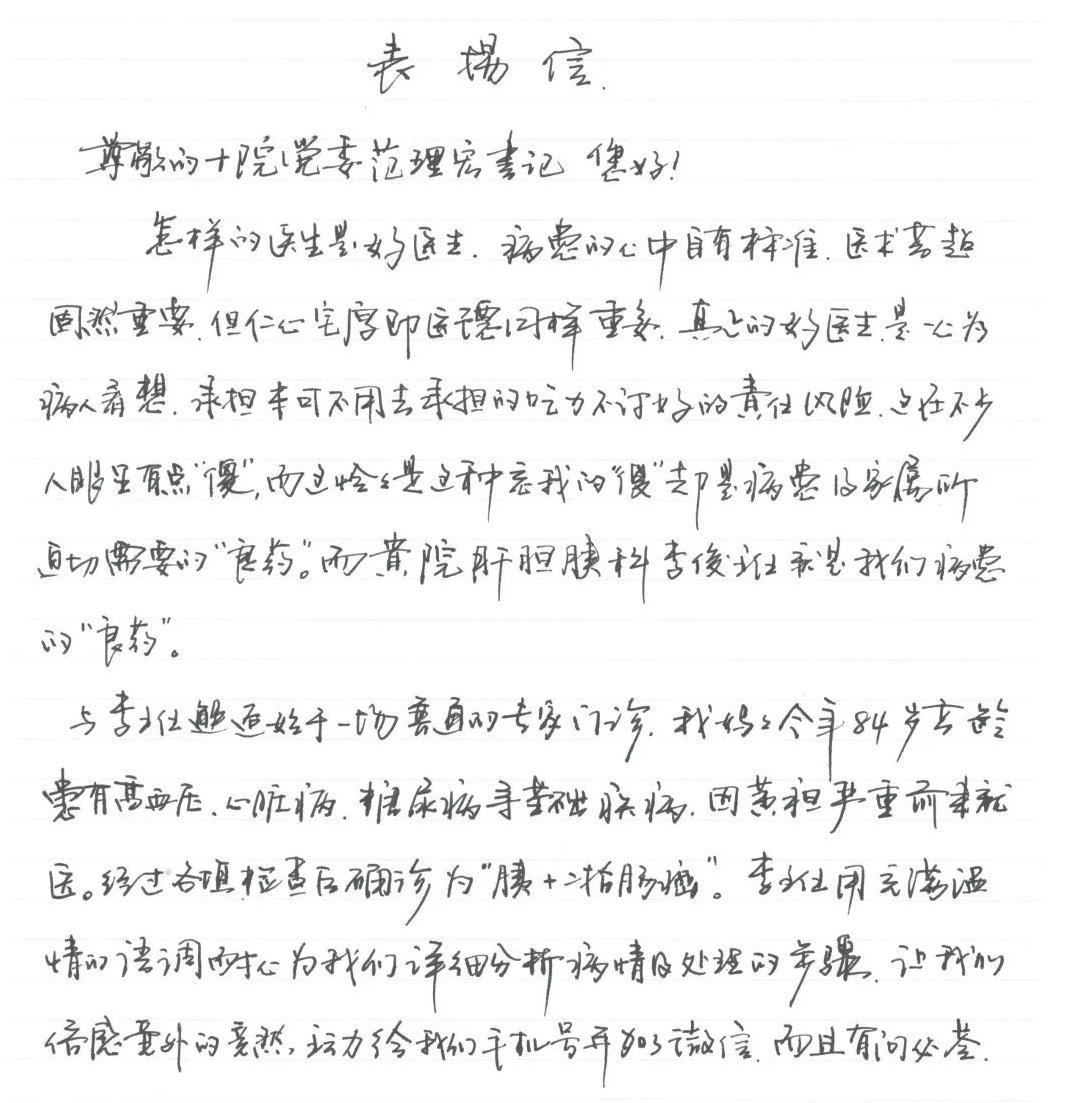 表揚信.
尊敬的十院党委范理宏書记 您好!
怎样的医生是好医生.病患的心中自有标准.医术高超
固然重要.但仁心宅厚即医德同样重要.真正的好医生是一心为
病人着想.承担本可不用去承担的吃力不讨好的責任风险.这在不少
人眼里有点“傻”,而这恰々是这种忘我的“傻”却是病患及家属所
迫切需要的“良药”。而貴院肝胆胰科李俊主任就是我们病患
的“良药”。
与李主任邂逅始于一场普通的专家门诊.我妈々今年84岁高龄
患有高血压、心脏病.糖尿病等基础疾病.因黄疸严重前来就
医。经过各项检查后确诊为“胰十二指肠癌”。李主任用充满温
情的语调耐心为我们详细分析病情及处理的步骤.让我们
倍感意外的竟然.主动给我们手机号并加了微信.而且有问必答.